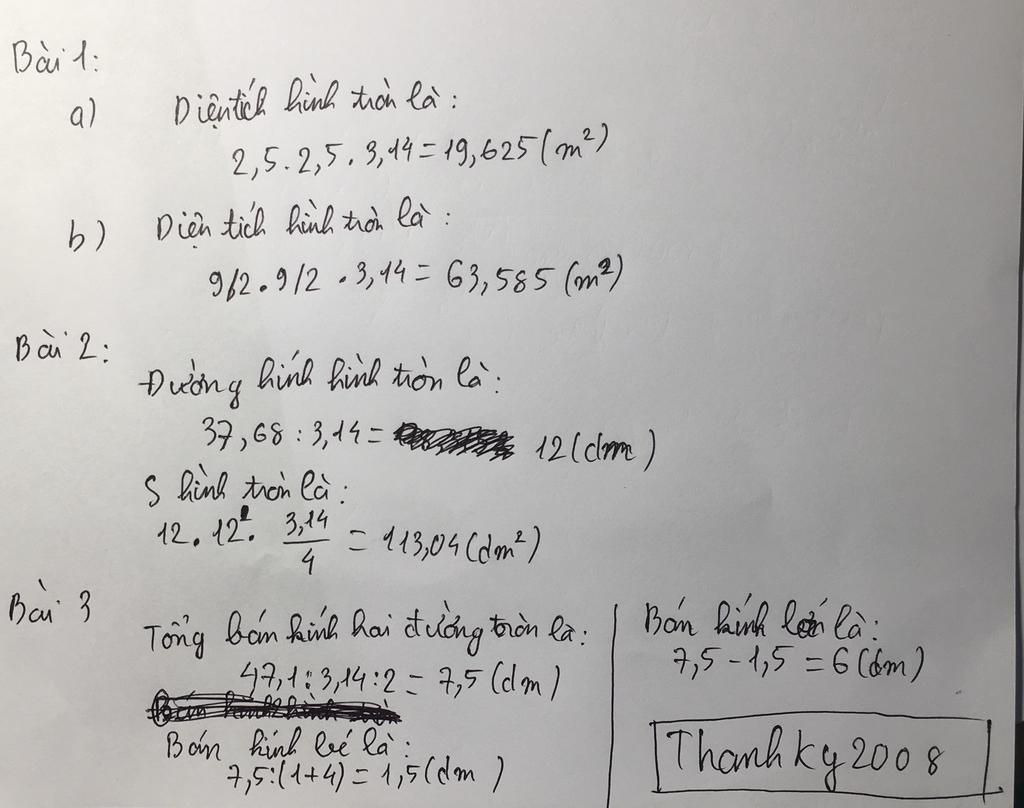 Bài 1:
a) Diện tích hình tròn là:
2,5.2,5.3,14=19,625(m²)
b) Diện tích hình tròn là:
9/2.9/2.3,14=63,585(m²)
Bài 2:
Đường kính hình tròn là:
37,68:3,14= 12(dm)
S hình tròn là:
12.12. 3,14/4 = 113,04(dm²)
Bài 3
Tổng bán kính hai đường tròn là:
47,1:3,14:2=7,5(dm)
Bán kính bé là:
7,5:(1+4)=1,5(dm)
Bán kính lớn là:
7,5-1,5=6(dm)
Thanhky2008